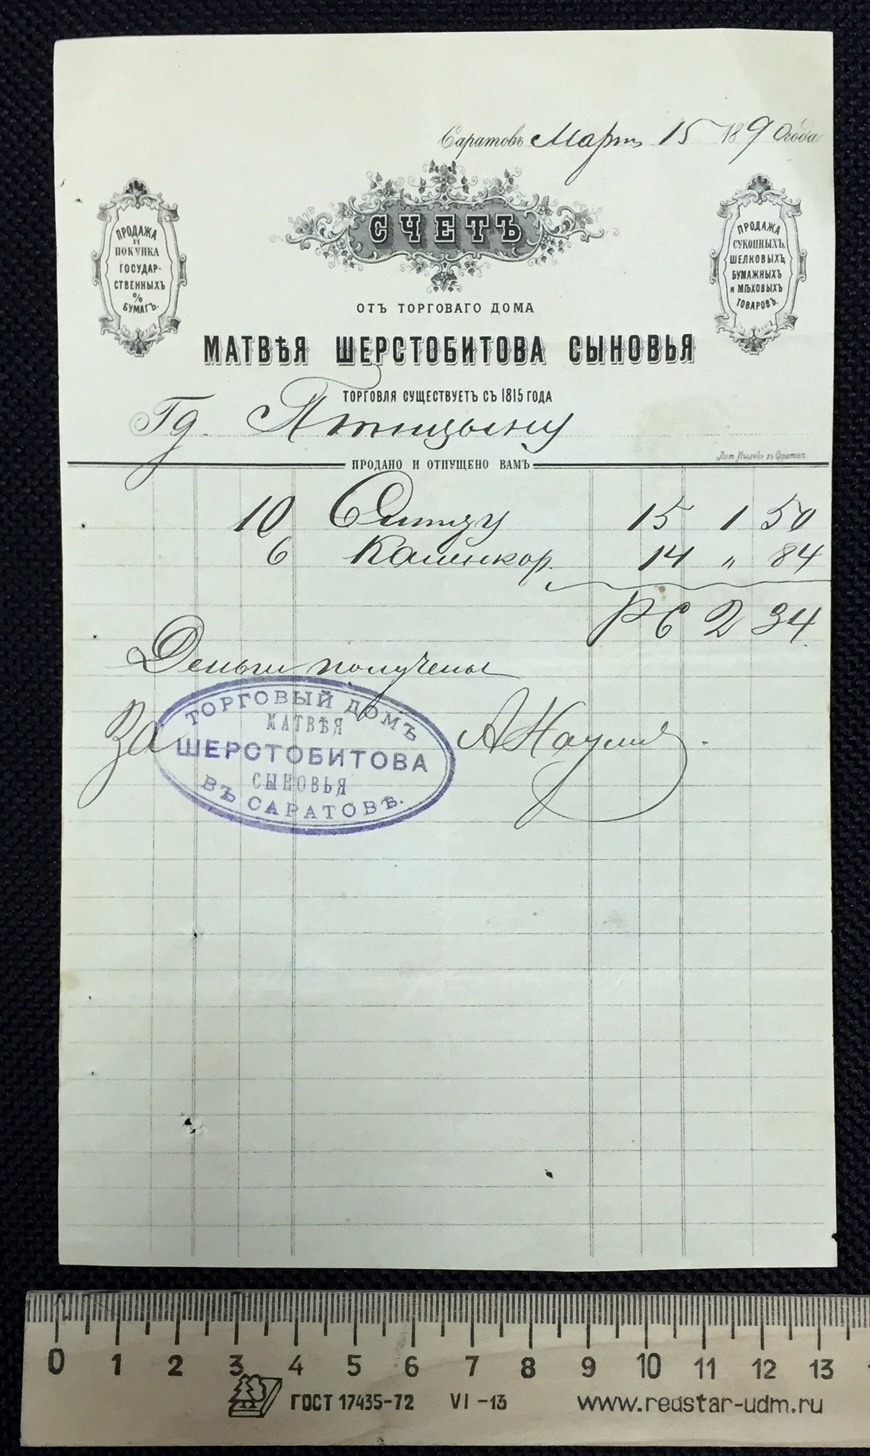 Саратовъ Март 15 1890 года
СЧЕТЪ
ПРОДАЖА
И
ПОКУПКА
ГОСУДАР-
СТВЕННЫХЪ
%
БУМАГЪ.
ПРОДАЖА
СУКОННЫХЪ,
ШЕЛКОВЫХЪ,
БУМАЖНЫХЪ
и МѢХОВЫХЪ
ТОВАРОВЪ.
ОТЪ ТОРГОВАГО ДОМА
МАТВѢЯ ШЕРСТОБИТОВА СЫНОВЬЯ
ТОРГОВЛЯ СУЩЕСТВУЕТЪ СЪ 1815 ГОДА
Гд. Птицыну
ПРОДАНО И ОТПУЩЕНО ВАМЪ
10 Ситцу 15 1 50
6 Каленкор 14 " 84
РС 2 34
Деньги получены
За
ТОРГОВЫЙ ДОМЪ
МАТВѢЯ
ШЕРСТОБИТОВА
СЫНОВЬЯ
ВЪ САРАТОВѢ.
0 1 2 3 4 5 6 7 8 9 10 11 12 13
ГОСТ 17435-72 VI-13 www.redstar-udm.ru